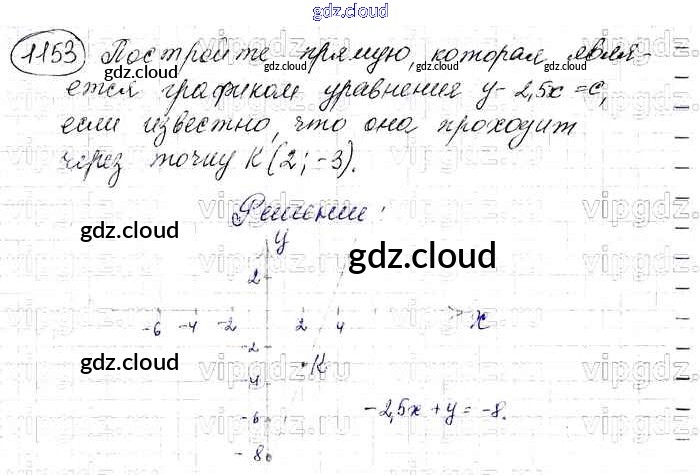 gdz.cloud
1153 Постройте прямую, которая явля-
gdz.cloud gdz.cloud
ется графиком уравнения y - 2,5x = c,
если известно, что она проходит
через точку K(2; -3).
vipgdz vipgdz vipgdz
Решение:
gdz.cloud
y
gdz.cloud
vipgdz.ru
2
-6 -4 -2 2 4 x
-2
gdz.cloud
K
gdz.cloud
-4
-2,5x + y = -8.
-6
-8